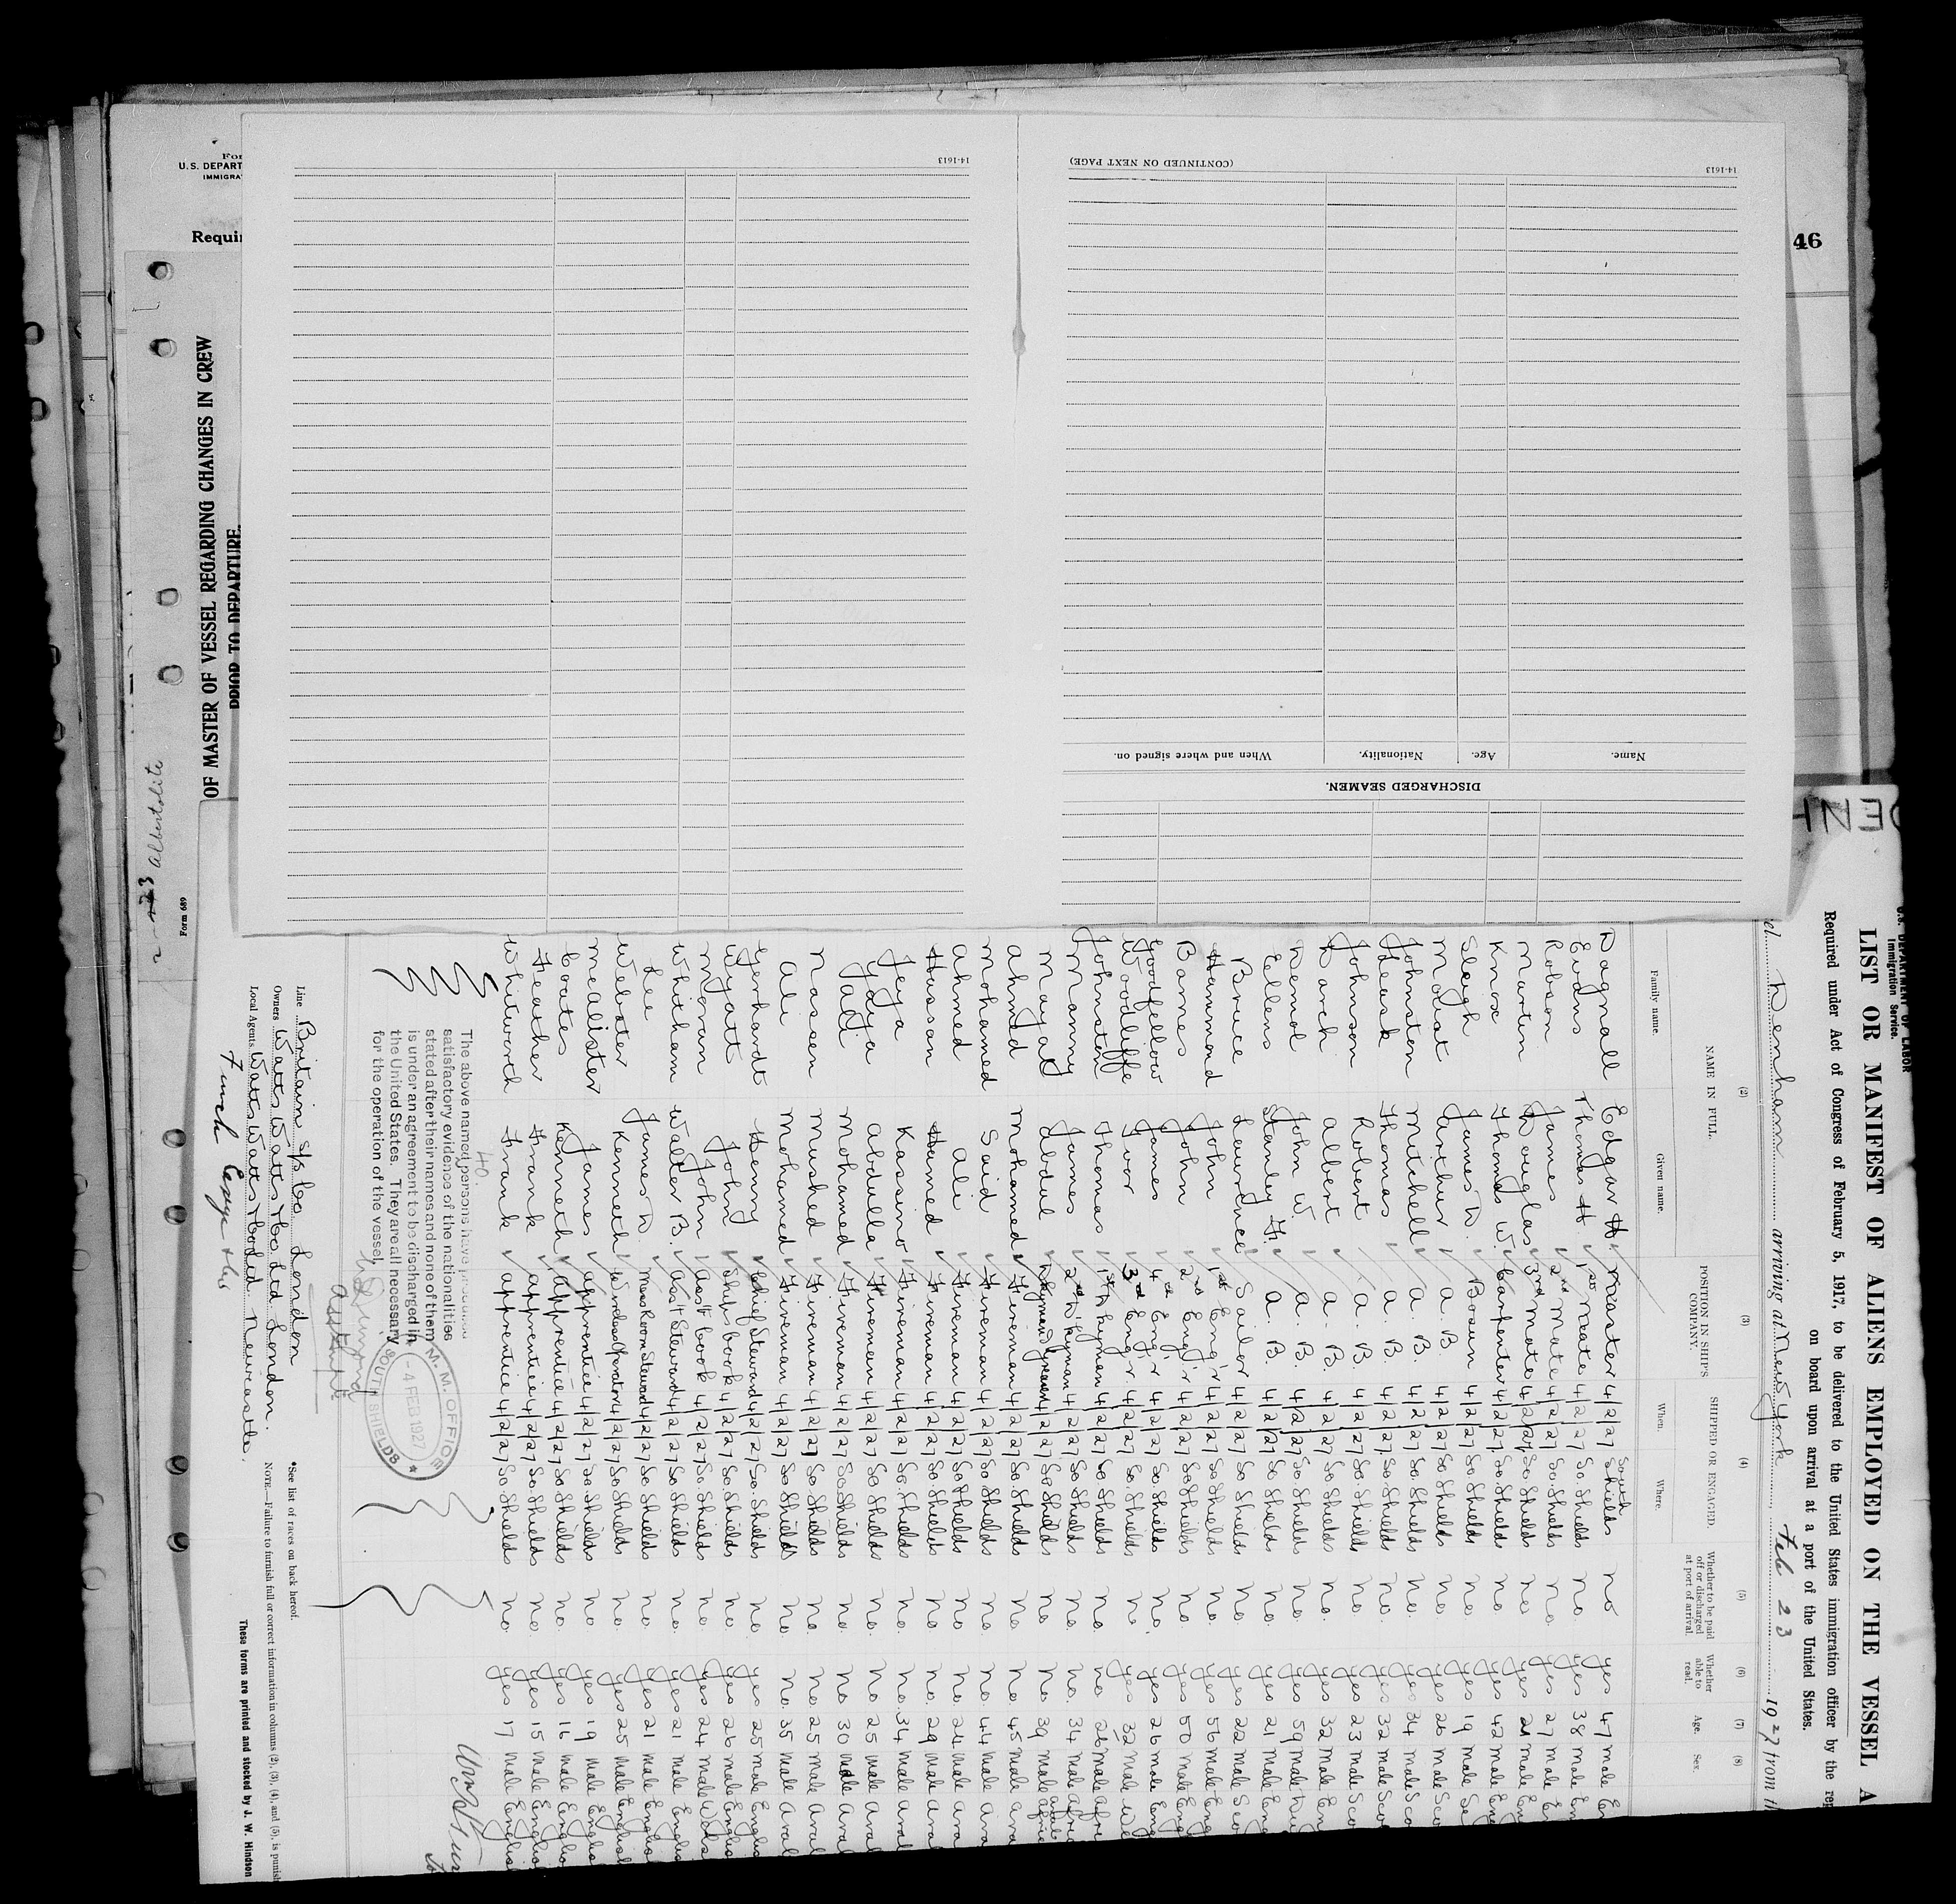 46
U.S. DEPART
IMMIGRA
Requir
OF MASTER OF VESSEL REGARDING CHANGES IN CREW
PRIOR TO DEPARTURE.
Albertolite
Form 689
14-1613
(CONTINUED ON NEXT PAGE)
14-1613
DISCHARGED SEAMEN.
Name. Age. Nationality. When and where signed on.
U.S. DEPARTMENT OF LABOR
Immigration Service.
LIST OR MANIFEST OF ALIENS EMPLOYED ON THE VESSEL A
Required under Act of Congress of February 5, 1917, to be delivered to the United States immigration officer by the rep
on board upon arrival at a port of the United States.
el Denham arriving at New York Feb 23 1927 from th
(2) (3) (4) (5) (6) (7) (8)
NAME IN FULL. POSITION IN SHIP'S COMPANY. SHIPPED OR ENGAGED. Whether to be paid off or discharged at port of arrival. Whether able to read. Age. Sex.
Family name. Given name. When. Where.
Dagnall Edgar H. Master 4/2/27 South Shields no yes 47 male Eng
Evans Thomas H 1st Mate 4/2/27 So. Shields no. yes 38 male En
Robson James 2nd Mate 4/2/27 So. Shields no. yes 27 male En
Martin Douglas 3rd Mate 4/2/27 So. Shields no yes 21 male En
Knox Thomas W. Carpenter 4/2/27 So Shields no yes 42 male Eng
Sleigh James D. Bosun 4/2/27 So Shields no. yes 19 male Sc
Modist Arthur A. B 4/2/27 So Shields no yes 26 male Sco
Johnston Mitchell A. B. 4/2/27 So. Shields no. yes 34 male Sco
Heask Thomas A. B. 4/2/27 So. Shields no. yes 32 male Sco
Johnson Robert A. B. 4/2/27 So. Shields no yes 23 male Sco
Darch Albert A. B 4/2/27 So Shields no. yes 32 male En
Denol John W. A. B. 4/2/27 So. Shields no. yes 59 male
Ellens Stanley F. A. B. 4/2/27 So Shields no yes 21 male Eng
Bruce Laurence Sailor 4/2/27 So Shields no yes 22 male Sco
Hammond John 1st Eng'r 4/2/27 So Shields no. yes 56 male Eng
Barnes John 2nd Eng'r 4/2/27 So Shields no. yes 50 male Eng
Goodfellow James 4th Eng'r 4/2/27 So. Shields no. yes 26 male Eng
Woodliffe Ivor 3rd Eng'r 4/2/27 So. Shields no yes 32 male We
Johnston Thomas 1st D'keyman 4/2/27 So Shields no no 26 male Afri
Manny James 2nd D'keyman 4/2/27 So Shields no. no. 34 male Afri
Mayal Abdul 4/2/27 So Shields no no 39 male Arab
Ahmed Mohamed Fireman 4/2/27 So. Shields no no 45 male Ara
Mohamed Said Fireman 4/2/27 So Shields no no. 44 male Ara
Ahmed Ali Fireman 4/2/27 So Shields no no. 24 male Ara
Hassan Hamed Fireman 4/2/27 So. Shields no. no. 29 male Ara
Jeya Kassino Fireman 4/2/27 So. Shields no. no. 34 male Arab
Yahya Abdulla Fireman 4/2/27 So Shields no. no 25 male Arab
Mohamed Fireman 4/2/27 So. Shields no. no 30 male Arab
Nassen Mushed Fireman 4/2/27 So. Shields no. no. 25 male Arab
Ali Mohamed Fireman 4/2/27 So Shields no. no. 35 male Arab
Gerhardt Henry Chief Steward 4/2/27 So. Shields no. yes 25 male English
Wyatt John Ship's Cook 4/2/27 So. Shields no yes 26 male English
Moran John Asst Cook 4/2/27 So. Shields no. yes 24 male Welsh
Whitham Walter B. Asst Steward 4/2/27 So Shields no. yes 21 male English
Lee James D. Mess Room Steward 4/2/27 So Shields no. yes 21 male English
Webster Kenneth Wireless Operator 4/2/27 So Shields no. yes 25 male English
McAlister James Apprentice 4/2/27 So Shields no yes 19 male English
Coates Kenneth Apprentice 4/2/27 So Shields no. yes 16 male English
Feather Frank Apprentice 4/2/27 So. Shields no. yes 15 male English
Whitworth Frank Apprentice 4/2/27 So Shields no. yes 17 male English
40.
The above named persons have produced
satisfactory evidence of the nationalities
stated after their names and none of them
is under an agreement to be discharged in
the United States. They are all necessary
for the operation of the vessel.
M. M. OFFICE
-4 FEB 1927
SOUTH SHIELDS
Line Britain S/S Co. London
Owners Watts Watts & Co Ltd London.
Local Agents Watts Watts & Co Ltd Newcastle.
Funch Edye & Co
*See list of races on back hereof.
NOTE.—Failure to furnish full or correct information in columns (2), (3), (4), and (5), is punish
These forms are printed and stocked by J. W. Hindson